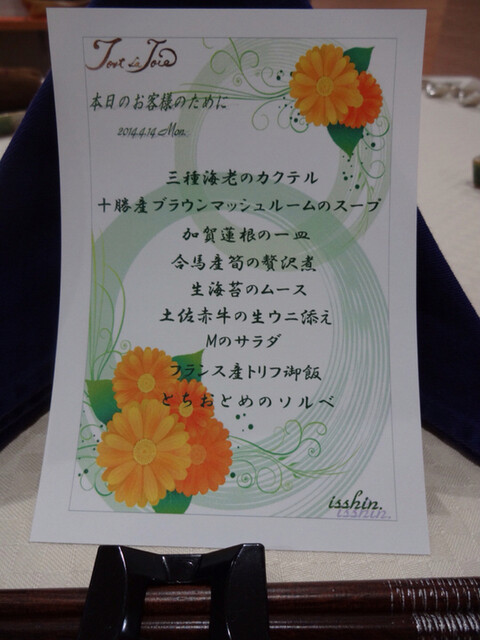 Tout La Joie
本日のお客様のために
2014.4.14 Mon.
三種海老のカクテル
十勝産ブラウンマッシュルームのスープ
加賀蓮根の一皿
合馬産筍の贅沢煮
生海苔のムース
土佐赤牛の生ウニ添え
Mのサラダ
フランス産トリフ御飯
とちおとめのソルベ
isshin.